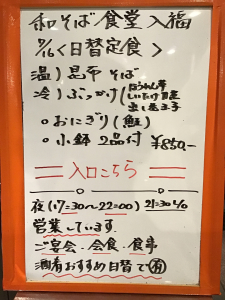 和そば食堂 入福
7/16<日替定食>
温)昆布そば
冷)ぶっかけ(ほうれん草
しいたけ
出し巻玉子
○おにぎり(鮭)
○小鉢 2品付 ¥850.-
入口こちら
夜(17=30~22=00) 21=30 L/O
営業しています.
ご宴会・会食・食事
酒肴おすすめ日替で有